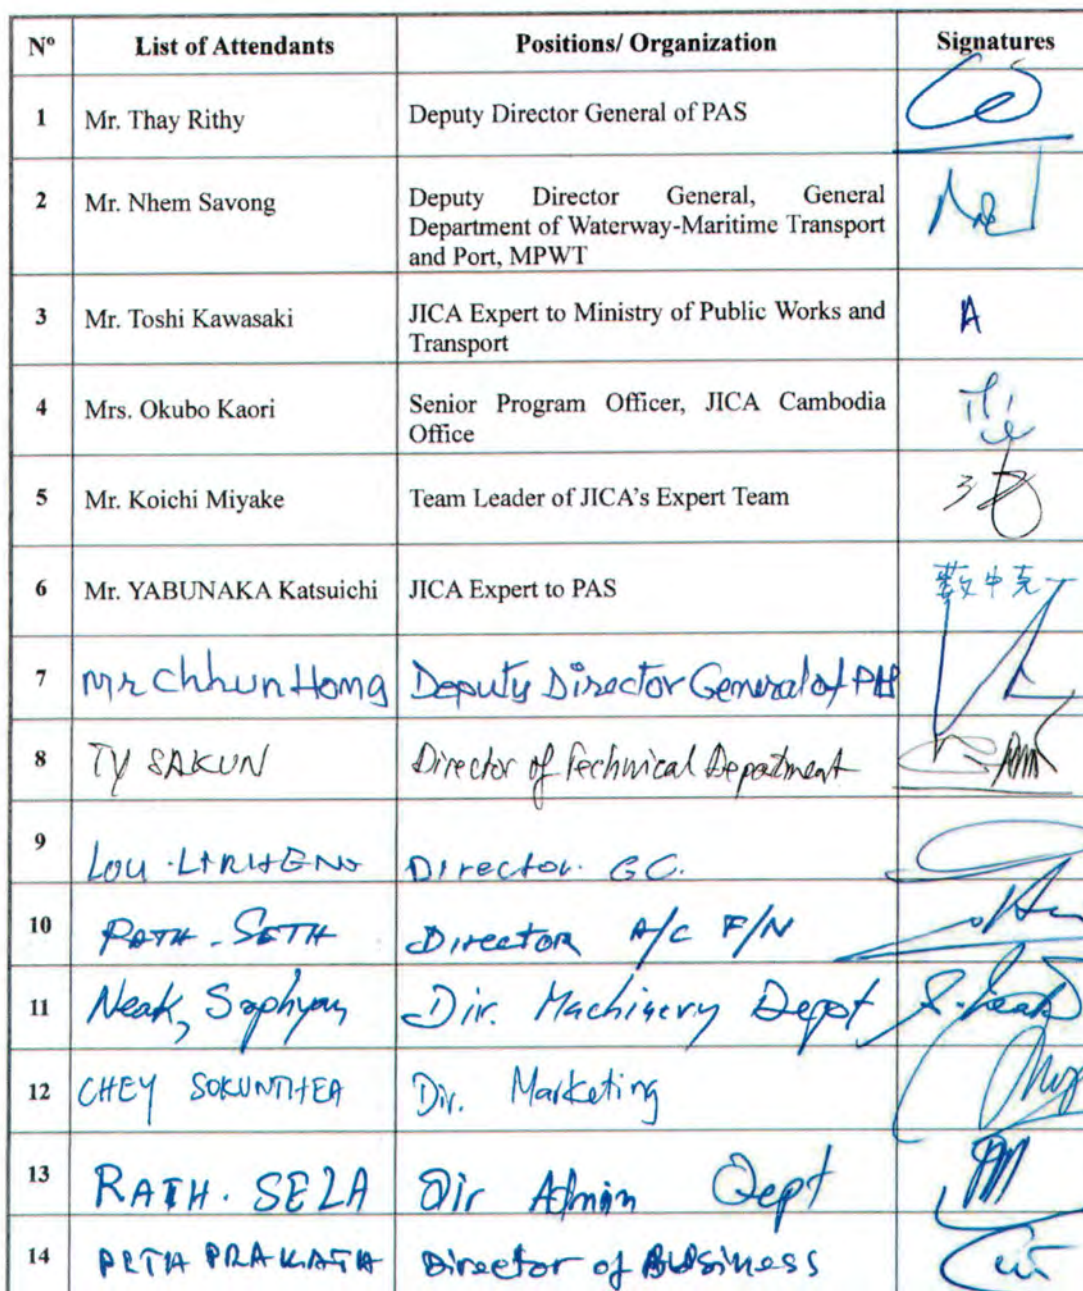 Nº List of Attendants Positions/ Organization Signatures
1 Mr. Thay Rithy Deputy Director General of PAS
2 Mr. Nhem Savong Deputy Director General, General
Department of Waterway-Maritime Transport
and Port, MPWT
3 Mr. Toshi Kawasaki JICA Expert to Ministry of Public Works and A
Transport
4 Mrs. Okubo Kaori Senior Program Officer, JICA Cambodia
Office
5 Mr. Koichi Miyake Team Leader of JICA's Expert Team
6 Mr. YABUNAKA Katsuichi JICA Expert to PAS 藪中克一
7 Mr Chhun Hong Deputy Director General of
8 TY SAKUN Director of Technical Department
9 LOU Director. GC.
10 RATH - SETH Director A/C F/N
11 Neak, Dir. Machinery Dept
12 CHEY SOKUNTHEA Dir. Marketing
13 RATH. SELA Dir Admin Dept
14 PRAKATH Director of Business